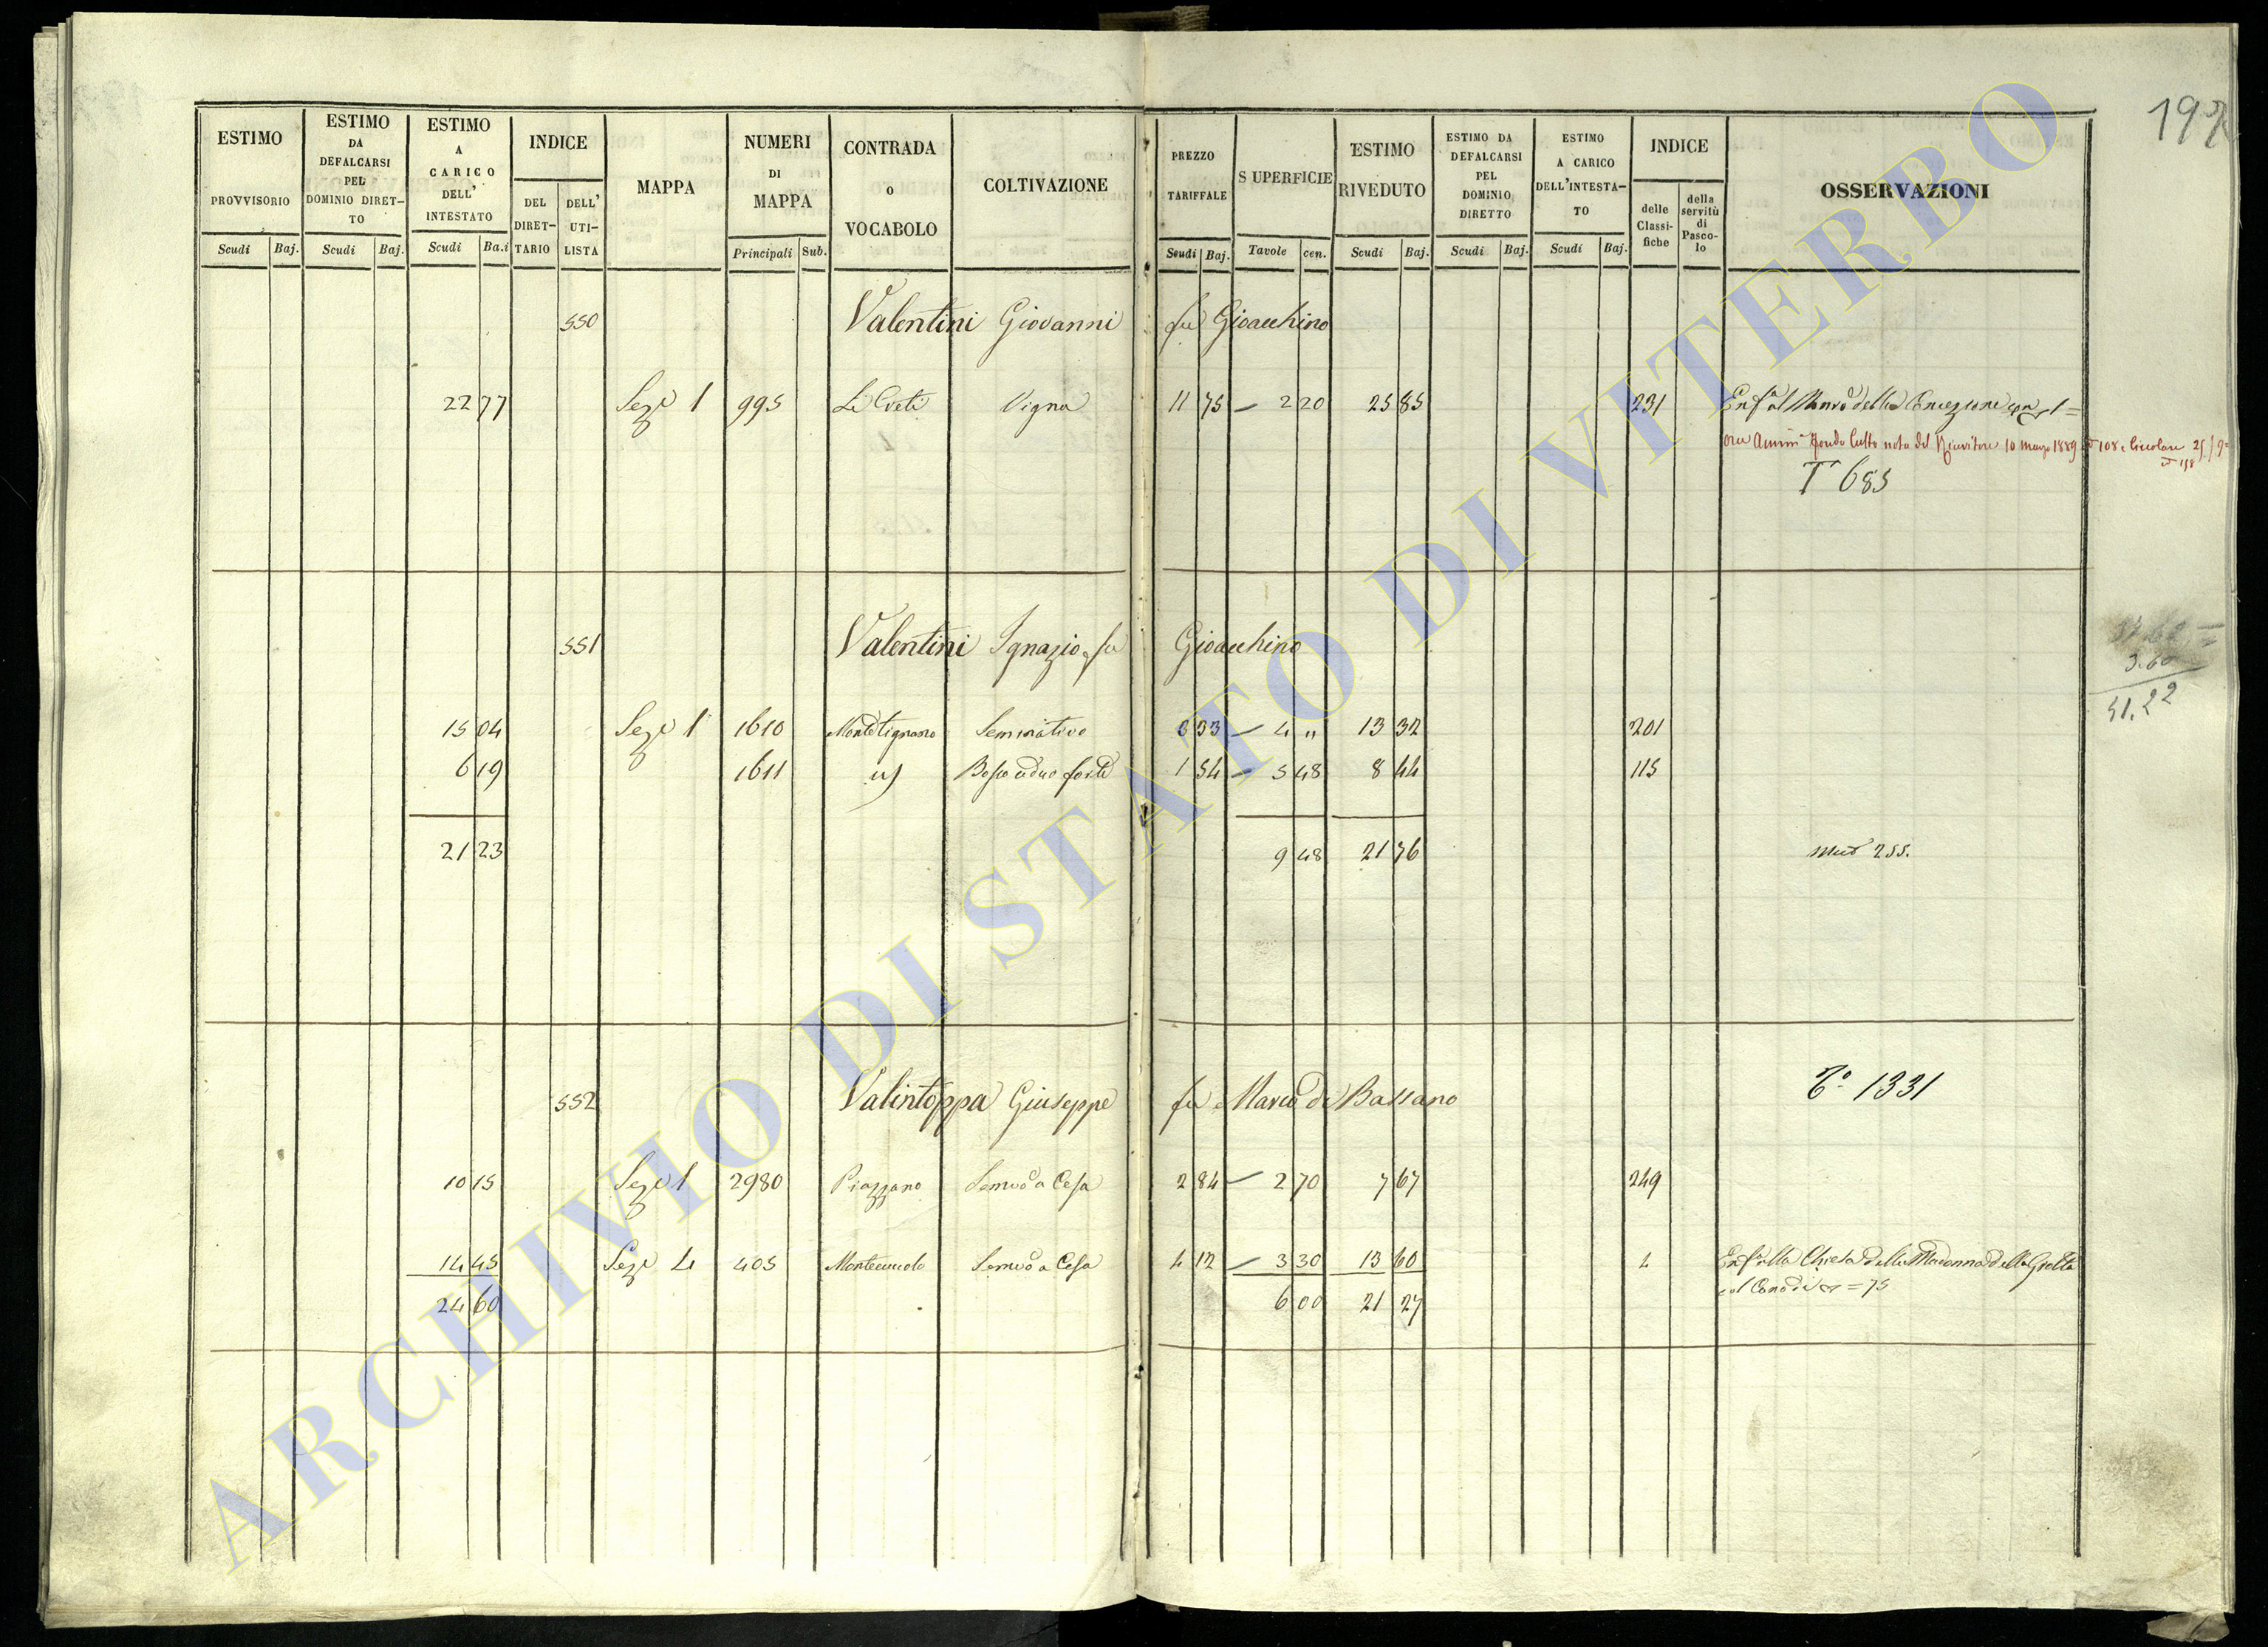 197
ESTIMO PROVVISORIO Scudi Baj.
ESTIMO DA DEFALCARSI PEL DOMINIO DIRET-TO Scudi Baj.
ESTIMO A CARICO DELL' INTESTATO Scudi Ba.i
INDICE DEL DIRET-TARIO DELL' UTI-LISTA
MAPPA
NUMERI DI MAPPA Principali Sub.
CONTRADA o VOCABOLO
COLTIVAZIONE
PREZZO TARIFFALE Scudi Baj.
SUPERFICIE Tavole cen.
ESTIMO RIVEDUTO Scudi Baj.
ESTIMO DA DEFALCARSI PEL DOMINIO DIRETTO Scudi Baj.
ESTIMO A CARICO DELL'INTESTA-TO Scudi Baj.
INDICE delle Classi-fiche della servitù di Pasco-lo
OSSERVAZIONI
550 Valentini Giovanni fu Gioacchino
22 77 Sezе 1 995 Vigna 11 75 — 2 20 25 85 231
nota del Ricevitore 10 marzo 1889
T 685
551 Valentini Ignazio fu Gioacchino
3.60
51.22
15 04 Seze 1 1610 Montetignano Seminativo 3 33 — 4 " 13 32 201
6 19 1611 Bosco ceduo forte 1 54 — 5 48 8 44 115
21 23 9 48 21 76 255.
552 Valintoppa Giuseppe fu Marco di Bassano 1331
10 15 Seze 1 2980 Piazzano Semvo a Cesa 2 84 — 2 70 7 67 249
14 45 Seze 4 405 Montecucolo Semvo a Cesa 4 12 — 3 30 13 60 4 Enfa alla Chiesa della Madonna della Grotta
24 60 6 00 21 27 = 75
ARCHIVIO DI STATO DI VITERBO